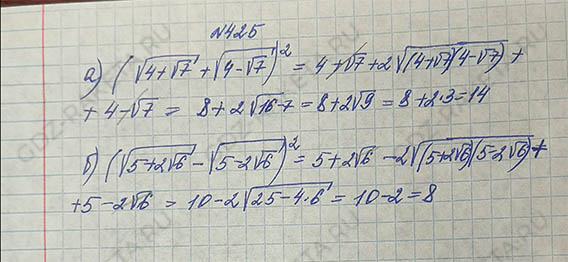 №425
а) (√(4+√7) + √(4-√7))² = 4+√7+2√((4+√7)(4-√7)) +
+ 4-√7 = 8+2√(16-7) = 8+2√9 = 8+2·3=14
б) (√(5+2√6) - √(5-2√6))² = 5+2√6 -2√((5+2√6)(5-2√6)) +
+5-2√6 = 10-2√(25-4·6) = 10-2=8